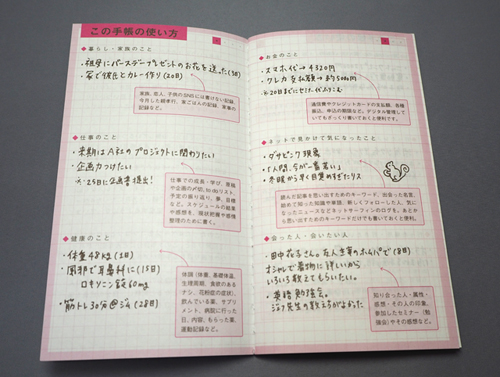 この手帳の使い方
◆暮らし・家族のこと
・祖母にバースデープレゼントのお花を送った(3日)
・家で彼氏とカレー作り(20日)
家族、恋人、子供のSNSには書けない記録、
今月した親孝行、家ごはんの記録、家事の
記録など。
◆仕事のこと
・来期はA社のプロジェクトに関わりたい
・企画力つけたい
※25日に企画書提出!
仕事での成長・学び、専門
や企画のメモ、to doリスト、
予定の振り返り、夢、目標
など。スケジュールの結果
や感想を、現状把握や感情
整理のために書く。
◆健康のこと
・体重48kg(1日)
・風邪で耳鼻科に(15日)
ロキソニン錠60mg
・筋トレ30分@ジム(28日)
体調(体重、基礎体温、
生理周期、食欲のある
ナシ、花粉症の症状)、
飲んでいる薬、サプリ
メント、病院に行った
日、内容、もらった薬、
運動記録など。
◆お金のこと
・スマホ代→4320円
・クレカ支払額→約5000円
※20日までに
通信費やクレジットカードの支払額、各種
振込、申込の期限など。デジタル管理して
いてもざっくり書いておくと便利です。
◆ネットで見かけて気になったこと
・ダサピンク現象
・「人間、今が一番若い」
・冬眠から早く目覚めすぎたリス
読んだ記事を思い出すためのキーワード、出会った名言、
初めて知った知識や単語、新しくフォローした人、気に
なったニュースなどネットサーフィンのログを。あとか
ら思い出すためのキーワードだけでも書いておくと便利。
◆会った人・会いたい人
・田中花子さん。友人主宰のホムパで(8日)
オシャレで着物に詳しいから
いろいろ教えてもらいたい。
・英語勉強会。
ジェフ先生の教え方がよかった
知り合った人・属性・
感想・その人の印象、
参加したセミナー(勉
強会)やその感想など。